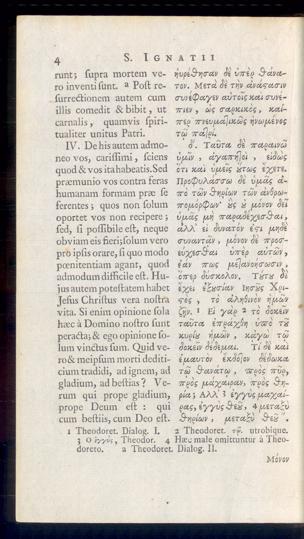 4 S. IGNATII
runt; supra mortem ve-
ro inventi sunt. 2 Post re-
surrectionem autem cum
illis comedit & bibit, ut
carnalis, quamvis spiri-
tualiter unitus Patri.
IV. De his autem admo-
neo vos, carissimi, sciens
quod & vos ita habeatis. Sed
præmunio vos contra feras
humanam formam præ se
ferentes; quos non solum
oportet vos non recipere;
sed, si possibile est, neque
obviam eis fieri; solum vero
pro ipsis orare, si quo modo
pœnitentiam agant, quod
admodum difficile est. Hu-
jus autem potestatem habet
Jesus Christus vera nostra
vita. Si enim opinione sola
hæc à Domino nostro sunt
peracta; & ego opinione so-
lum vinctus sum. Quid ve-
ro & meipsum morti dediti-
cium tradidi, ad ignem, ad
gladium, ad bestias? Ve-
rum qui prope gladium,
prope Deum est: qui
cum bestiis, cum Deo est.
ηὑρέθησαν δὲ ὑπὲρ θάνα-
τον. Μετὰ δὲ τὴν ἀνάστασιν
συνέφαγεν αὐτοῖς καὶ συνέ-
πιεν, ὡς σαρκικὸς, καί-
περ πνευματικῶς ἡνωμένος
τῷ πατρί.
δʹ. Ταῦτα δὲ παραινῶ
ὑμῖν, ἀγαπητοὶ, εἰδὼς
ὅτι καὶ ὑμεῖς οὕτως ἔχετε.
Προφυλάσσω δὲ ὑμᾶς ἀ-
πὸ τῶν θηρίων τῶν ἀνθρω-
πομόρφων· οὓς οὐ μόνον δεῖ
ὑμᾶς μὴ παραδέχεσθαι,
ἀλλ' εἰ δυνατόν ἐστι μηδὲ
συναντᾶν, μόνον δὲ προσ-
εύχεσθαι ὑπὲρ αὐτῶν,
ἐάν πως μετανοήσωσιν,
ὅπερ δύσκολον. Τούτου δὲ
ἔχει ἐξουσίαν Ἰησοῦς Χρι-
στὸς, τὸ ἀληθινὸν ἡμῶν
ζῆν. 1 Εἰ γὰρ 2 τὸ δοκεῖν
ταῦτα ἐπράχθη ὑπὸ τοῦ
κυρίου ἡμῶν, κἀγὼ τῷ
δοκεῖν δέδεμαι. Τί δὲ καὶ
ἐμαυτὸν ἔκδοτον δέδωκα
τῷ θανάτῳ, πρὸς πῦρ,
πρὸς μάχαιραν, πρὸς θη-
ρία; Ἀλλ' 3 ἐγγὺς μαχαί-
ρας, ἐγγὺς θεοῦ, 4 μεταξὺ
θηρίων, μεταξὺ θεοῦ.
1 Theodoret. Dialog. I. 2 Theodoret. τῷ. utrobique.
3 Ὁ ἐγγὺς, Theodor. 4 Hæc male omittuntur à Theo-
doreto. a Theodoret. Dialog. II.
Μόνον